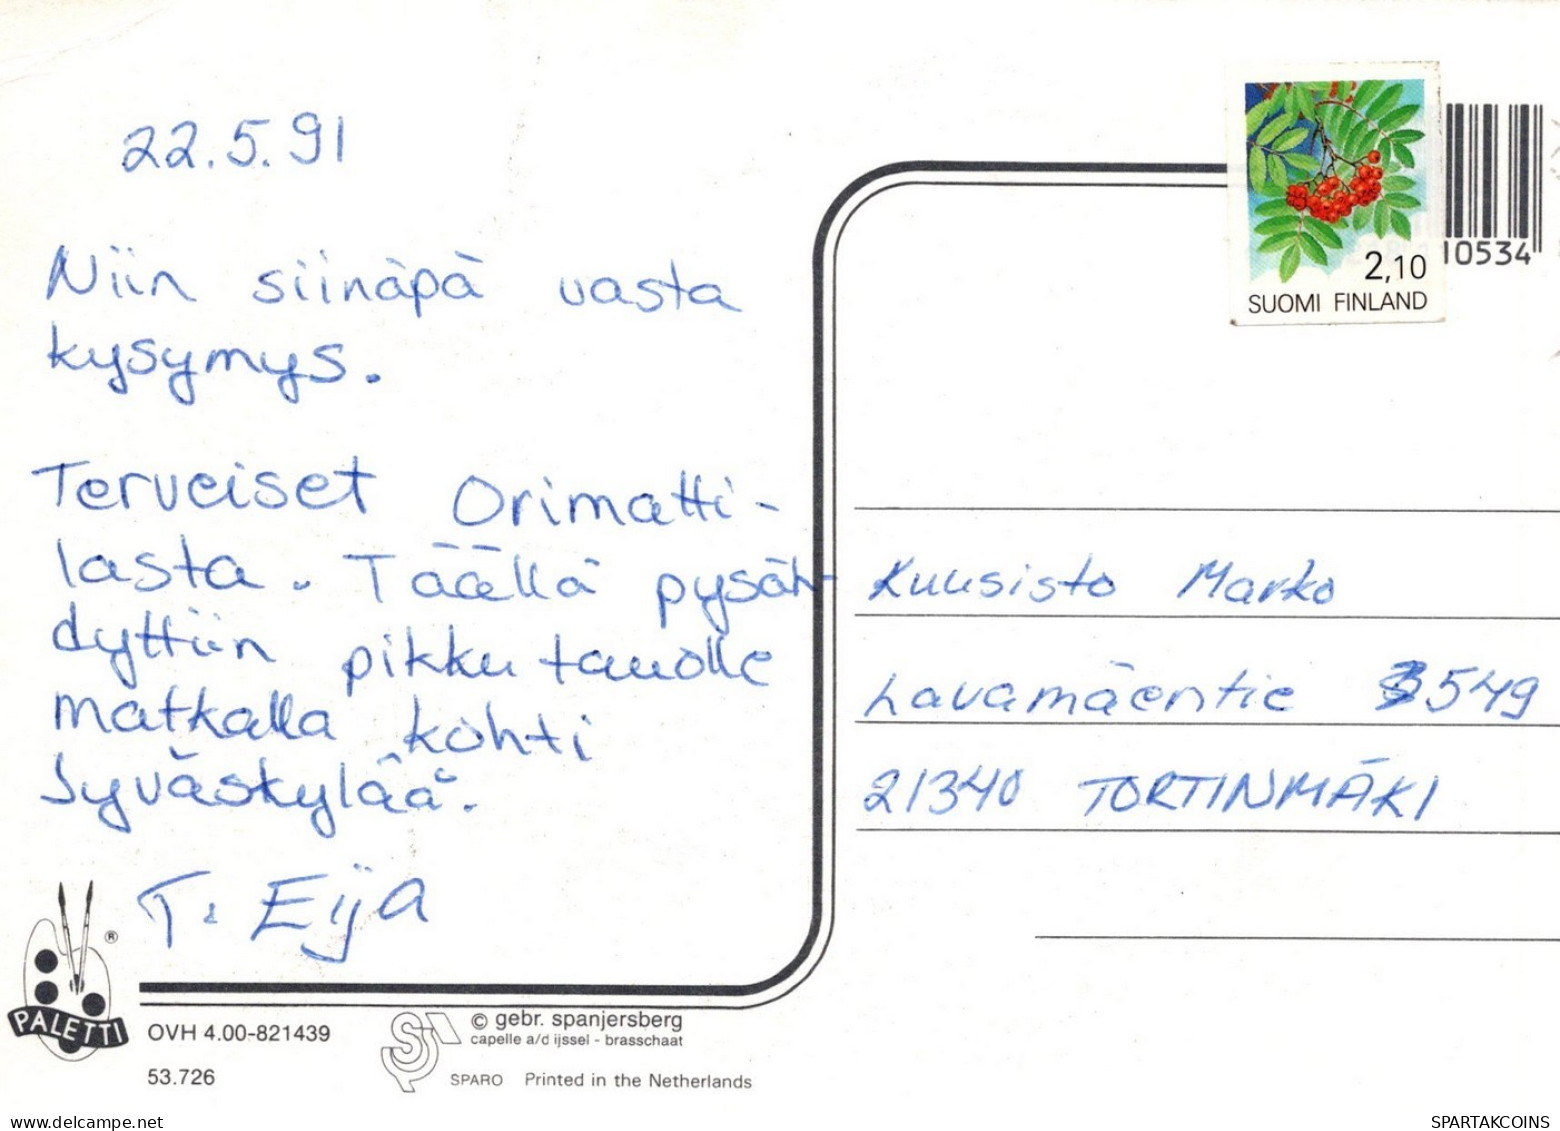 22.5.91
Niin siinäpä vasta
kysymys.
Terveiset Orimatti-
lasta. Täällä pysäh-
dyttiin pikku tauolle
matkalla kohti
Jyväskylää.
T. Eija
2,10
SUOMI FINLAND
10534
Kuusisto Marko
Lavamäentie 549
21340 TORTINMÄKI
®
PALETTI
OVH 4.00-821439
53.726
© gebr. spanjersberg
capelle a/d ijssel - brasschaat
SPARO Printed in the Netherlands
www.delcampe.net
SPARTAKCOINS